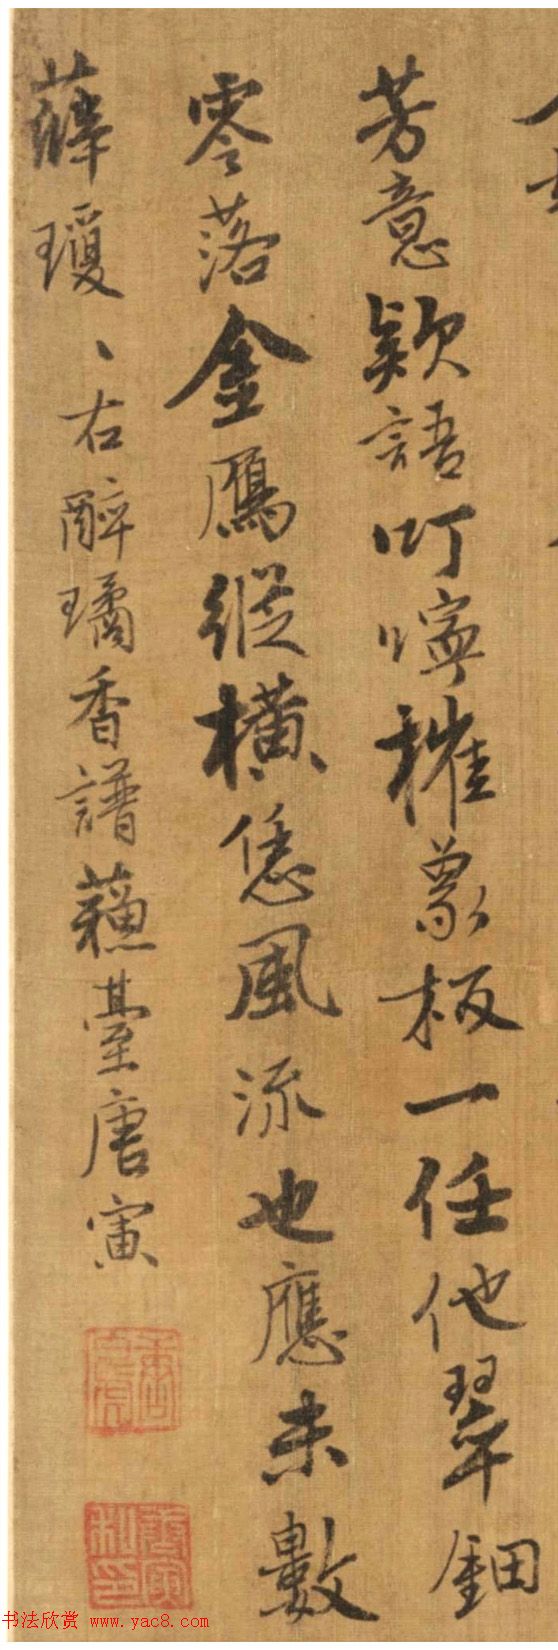 芳意欵語叮嚀摧象板一任他翠鈿
零落金鴈縱橫恁風流也應未數
薛瓊、右醉瓊香譜蘇臺唐寅
唐寅私印
书法欣赏 www.yac8.com